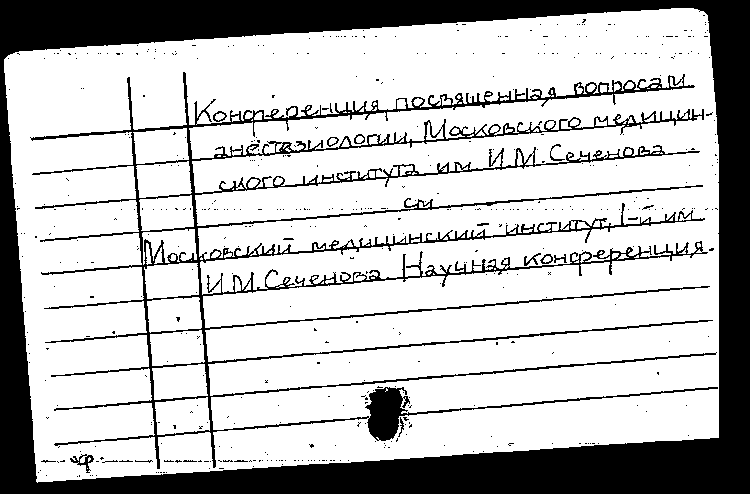 Конференция, посвященная вопросам
анестезиологии, Московского медицин-
ского института им. И.М. Сеченова
см
Московский медицинский институт, 1-й им
И.М. Сеченова Научная конференция.